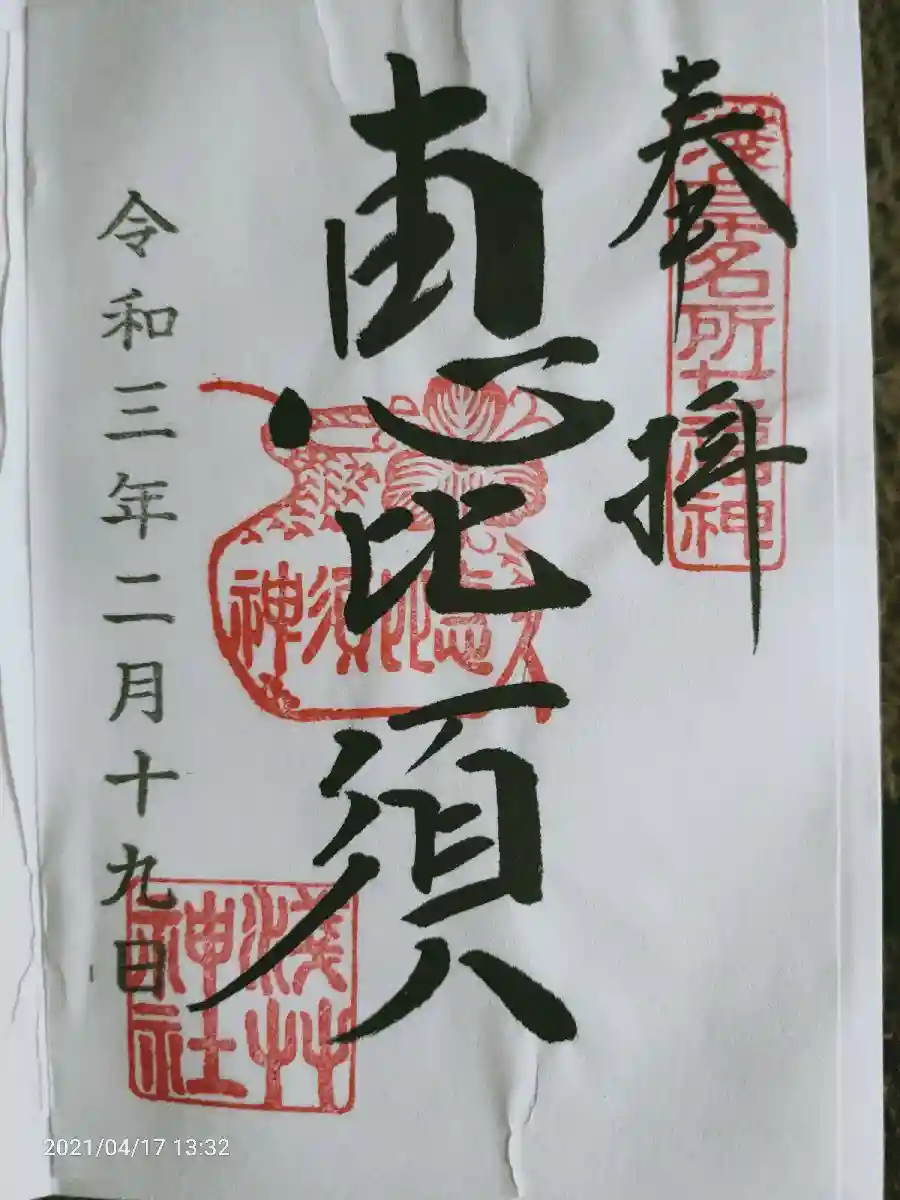 奉拝
浅草名所七福神
恵比須
久恵比須神
浅草神社
令和三年二月十九日
2021/04/17 13:32